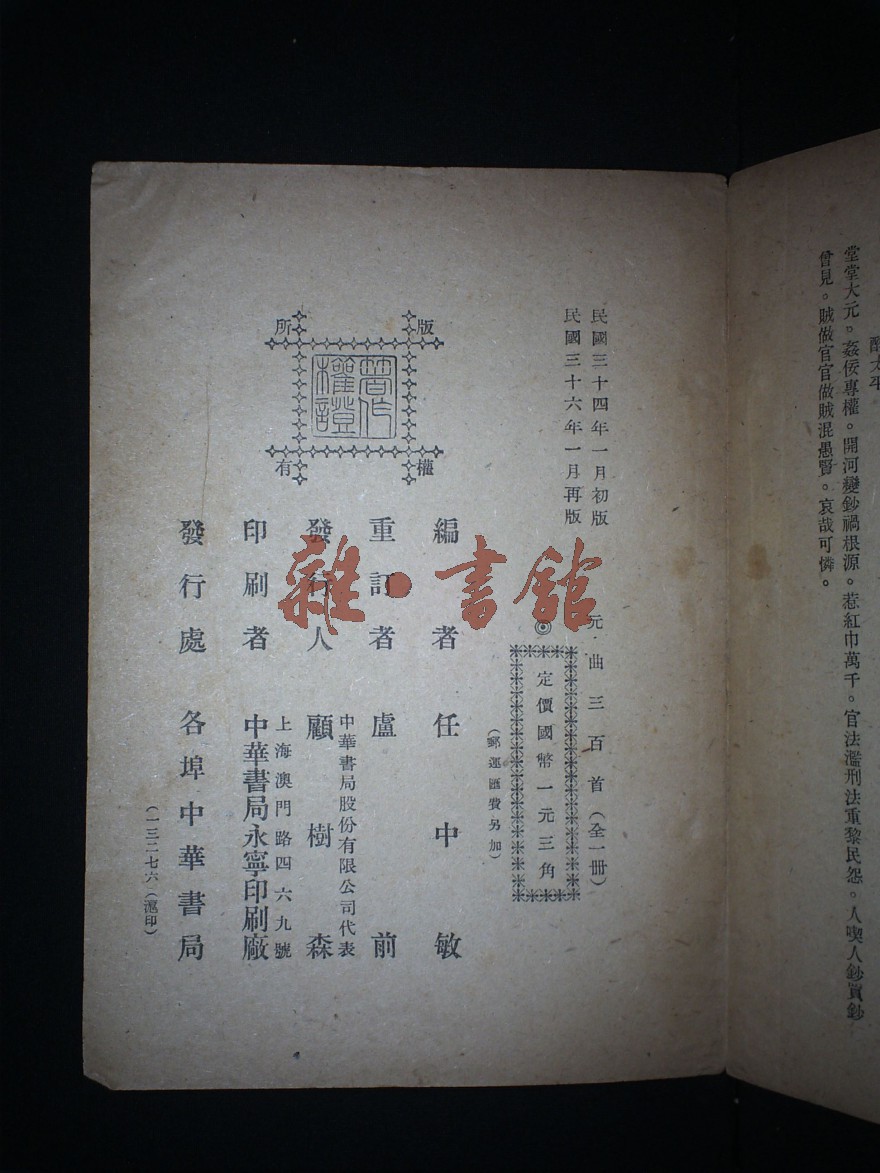 醉太平
堂堂大元。姦佞專權。開河變鈔禍根源。惹紅巾萬千。官法濫刑法重黎民怨。人喫人鈔買鈔
曾見。賊做官官做賊混愚賢。哀哉可憐。
民國三十四年一月初版
民國三十六年一月再版
元曲三百首（全一冊）
◎
定價國幣一元三角
（郵運匯費另加）
版權所有
著作權證
編者 任中敏
重訂者 盧前
中華書局股份有限公司代表
發行人 顧樹森
上海澳門路四六九號
印刷者 中華書局永寧印刷廠
發行處 各埠中華書局
（一三二七六）（滬印）
雜·書館